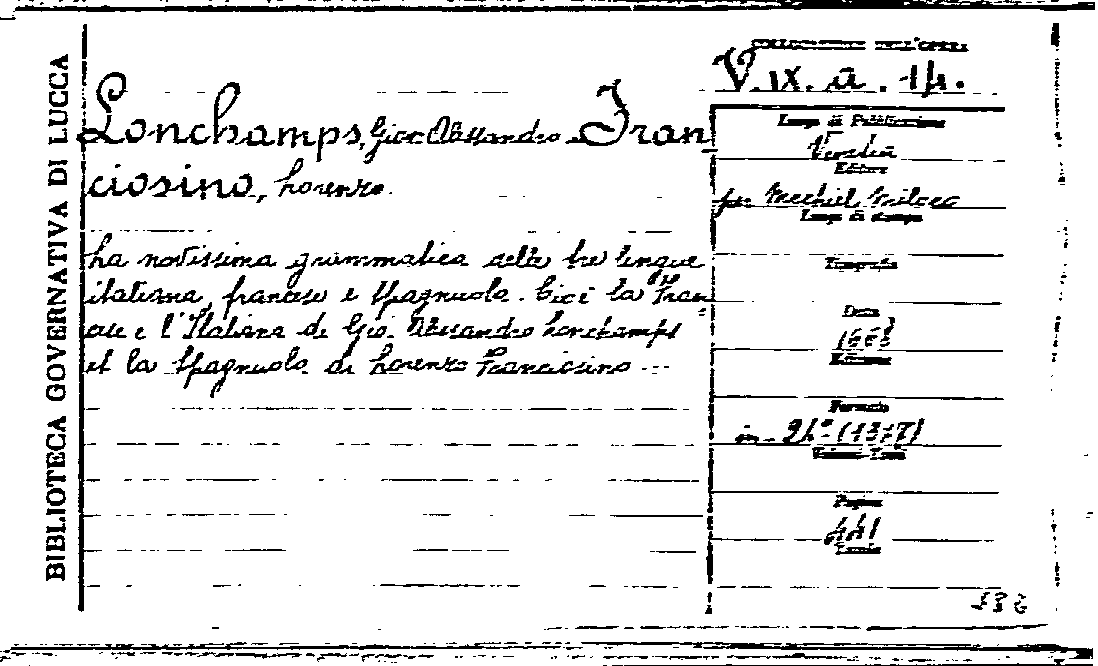 BIBLIOTECA GOVERNATIVA DI LUCCA
COLLOCAZIONE DELL'OPERA
V. IX. a. 14.
Lonchamps, Gio: Alessandro - Fran
ciosino, Lorenzo.
La novissima grammatica delle tre lingue
italiana, francese e spagnuola. Cioè la Fran
cese e l'Italiana di Gio. Alessandro Lonchamps
et la Spagnuola di Lorenzo Franciosino ...
Luogo di Pubblicazione
Venetia
Editore
per
Luogo di stampa
Tipografia
Data
Edizione
Formato
in - 24° (13x7)
Volume - Tomo
Pagine
441
Tavole